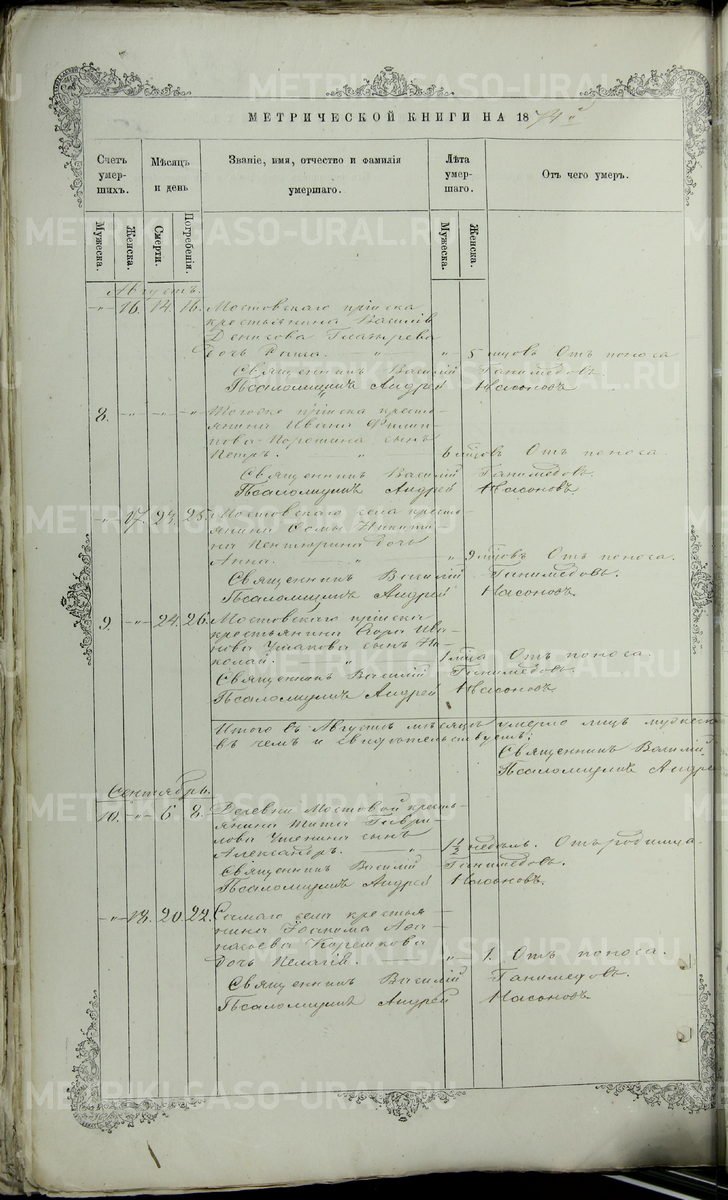 МЕТРИЧЕСКОЙ КНИГИ НА 1874 й
Счетъ умер-шихъ.
Мѣсяцъ и день
Званіе, имя, отчество и фамилія умершаго.
Лѣта умер-шаго.
Отъ чего умеръ.
Мужеска.
Женска.
Смерти.
Погребенія.
Мужеска.
Женска.
Августъ.
„ 16. 14 16. Мостовскаго пріиска
крестьянина Василія
Денисова
дочь „ „ 5 мцовъ Отъ поноса
Священникъ Василій Ганимедовъ.
Псаломщикъ Андрей Насоновъ
8. „ „ „ Тогоже пріиска кресть-
янина Ивана Филип-
пова сынъ
Петръ. „ 6 мцовъ Отъ поноса.
Священникъ Василій Ганимедовъ.
Псаломщикъ Андрей Насоновъ
„ 17. 23. 25. Мостовскаго села кресть-
янина Никити-
на дочь
Анна. „ „ 9 мцовъ Отъ поноса.
Священникъ Василій Ганимедовъ.
Псаломщикъ Андрей Насоновъ.
9. „ 24. 26. Мостовскаго пріиска
крестьянина Егора Ива-
нова Ушакова сынъ Ни-
колай. „ 1 мца Отъ поноса.
Священникъ Василій Ганимедовъ
Псаломщикъ Андрей Насоновъ
Итого въ Августѣ мѣсяцѣ умерло лицъ мужеска
въ чемъ и свидѣтельствуемъ:
Священникъ Василій
Псаломщикъ Андрей
Сентябрь.
10. „ 6 8. Деревни Мостовой кресть-
янина Тита Гаври-
лова сынъ
Александръ. „ 1½ недѣль. Отъ родимца.
Священникъ Василій Ганимедовъ.
Псаломщикъ Андрей Насоновъ.
„ 18. 20. 22. Самаго села крестья-
нина Іоакима Афа-
насьева Корешкова
дочь Пелагія. „ 1. Отъ поноса.
Священникъ Василій Ганимедовъ.
Псаломщикъ Андрей Насоновъ
METRIKI.GASO-URAL.RU